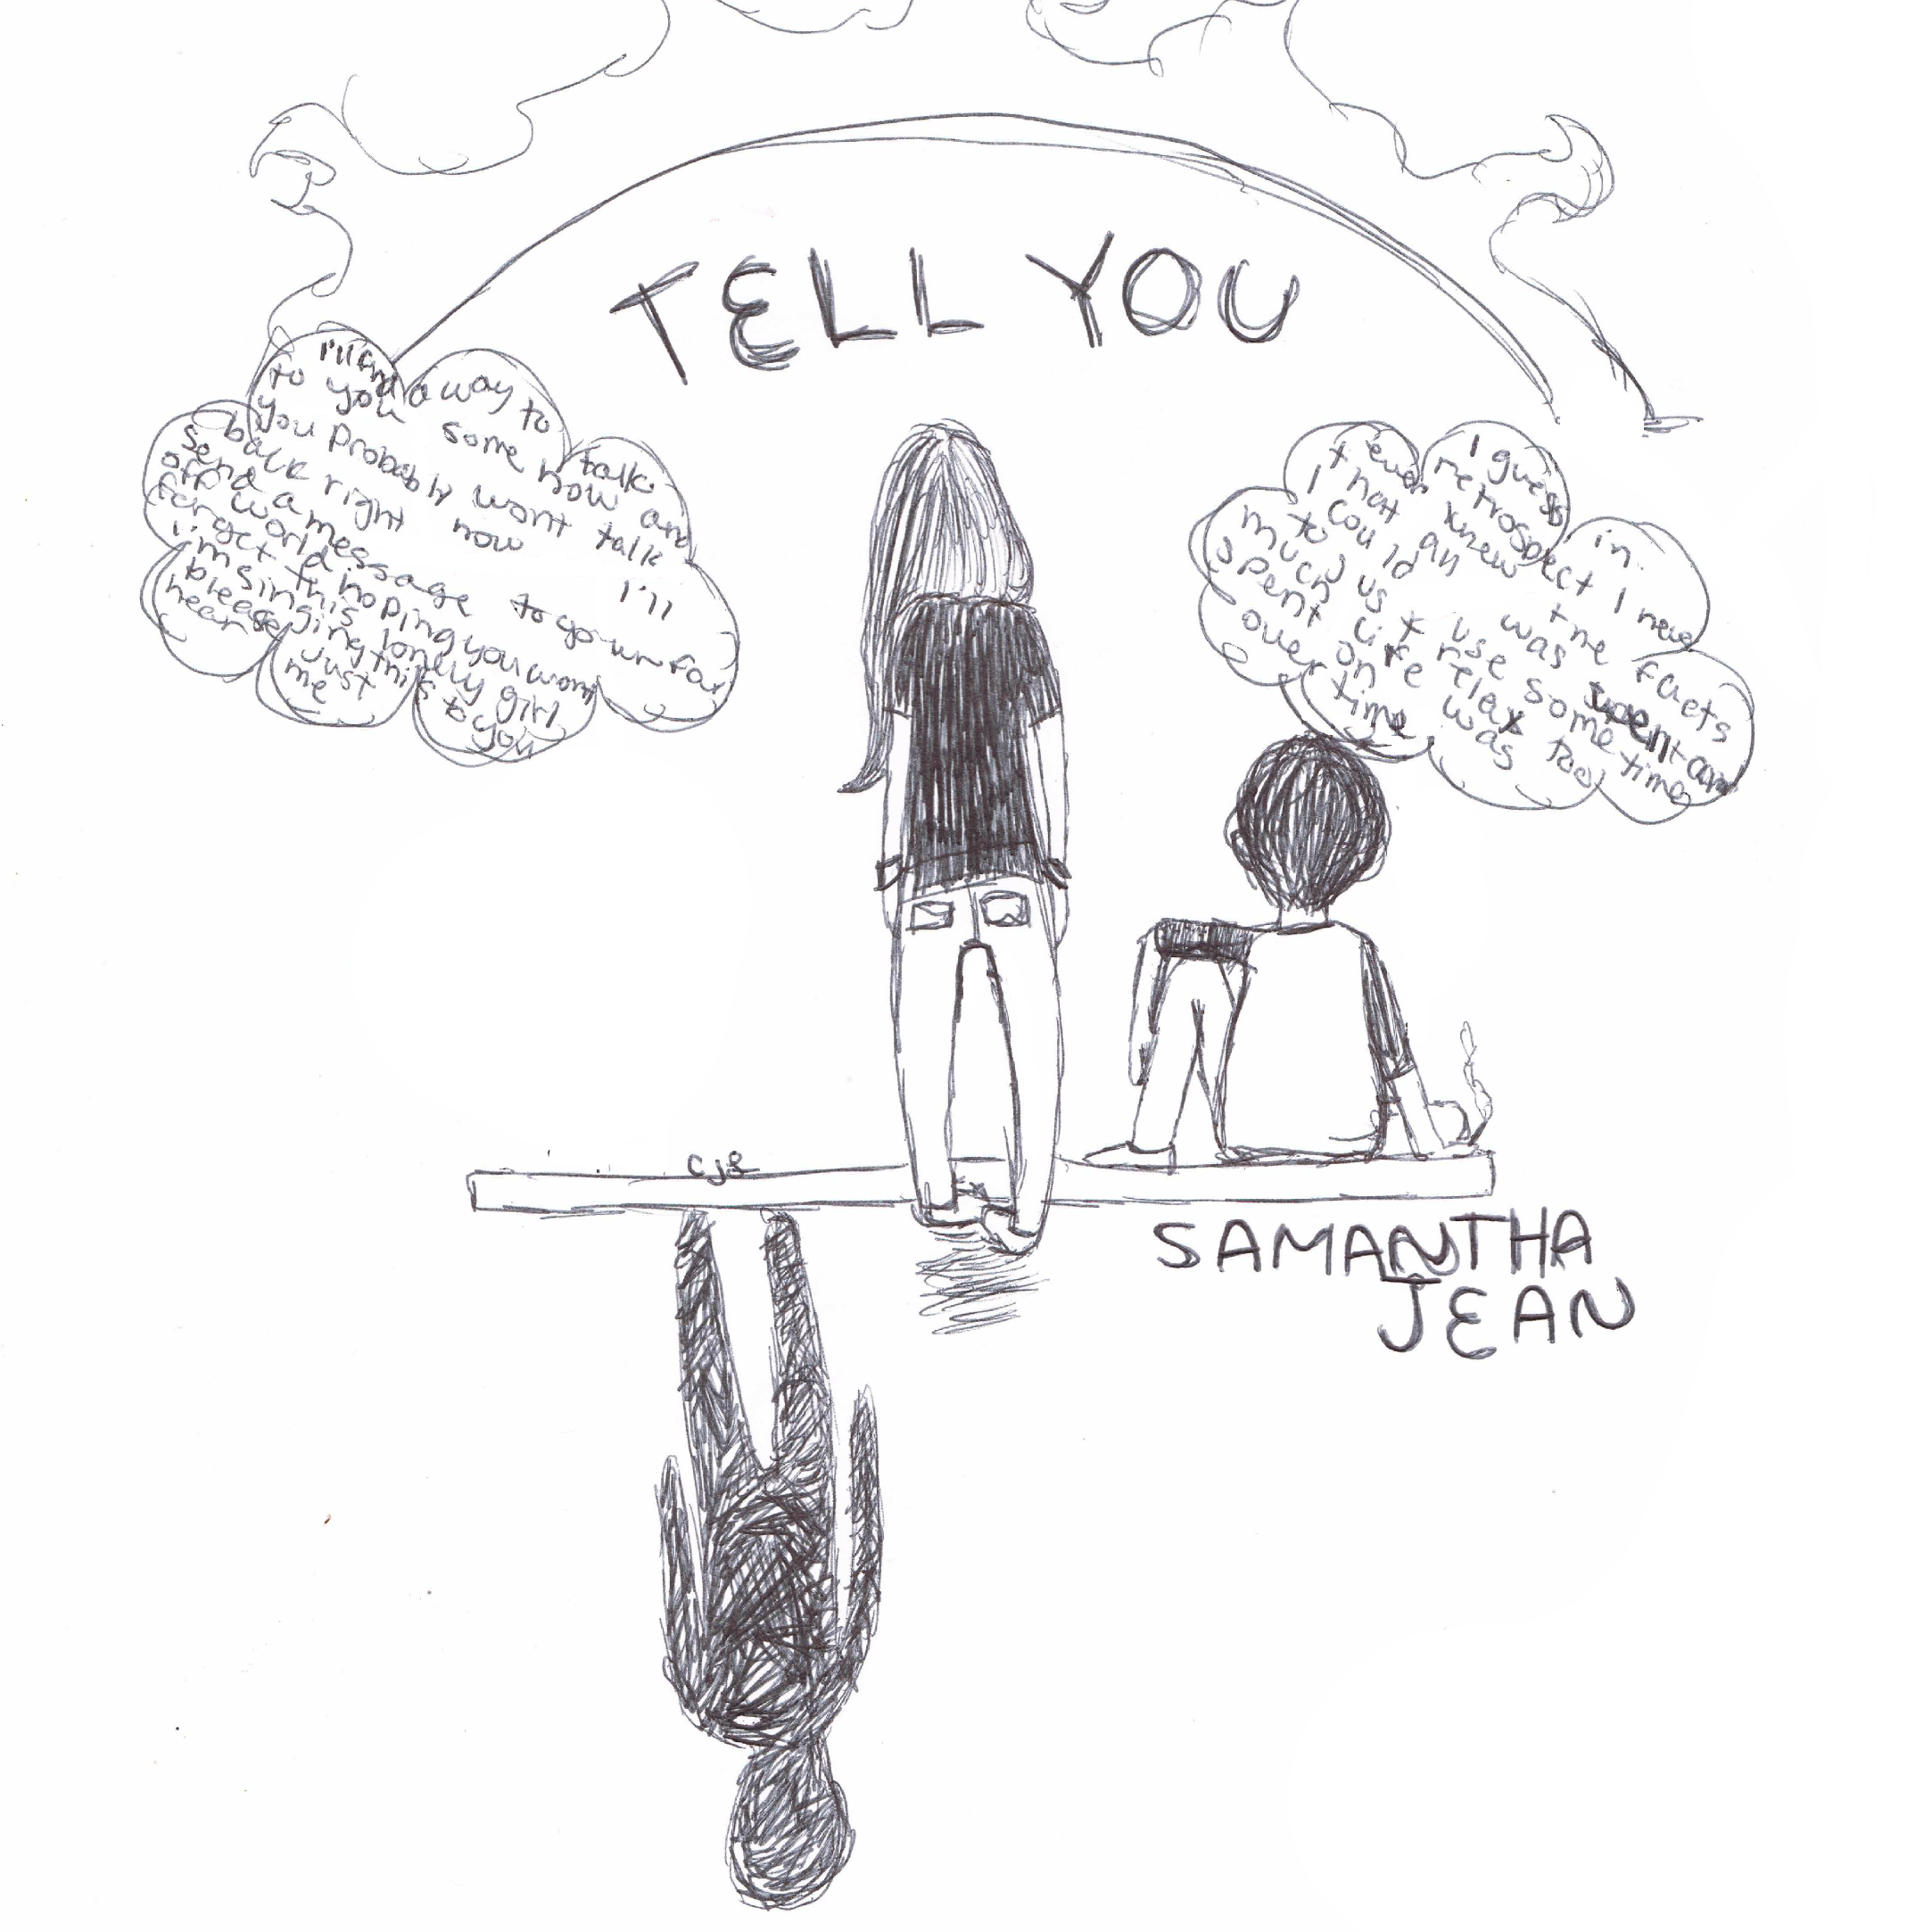 TELL YOU
I'll find a way to talk
to you some how and
you probably wont talk
back right now I'll
send a message to your far
off world hoping you wont
forget this lonely girl
i'm singing this to you
please just
hear me
I guess in
retrospect I never
ever knew the facts
that all was spent and
I could use some time
to us + relax too
much life was
spent on
over time
cje
SAMANTHA
JEAN